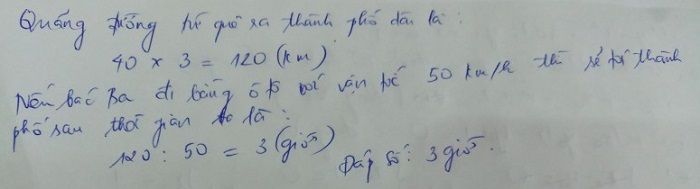 Quãng đường từ quê ra thành phố dài là :
40 x 3 = 120 (km)
Nếu bác Ba đi bằng ô tô với vận tốc 50 km/h thì sẽ tới thành
phố sau thời gian là :
120 : 50 = 3 (giờ)
Đáp số : 3 giờ .